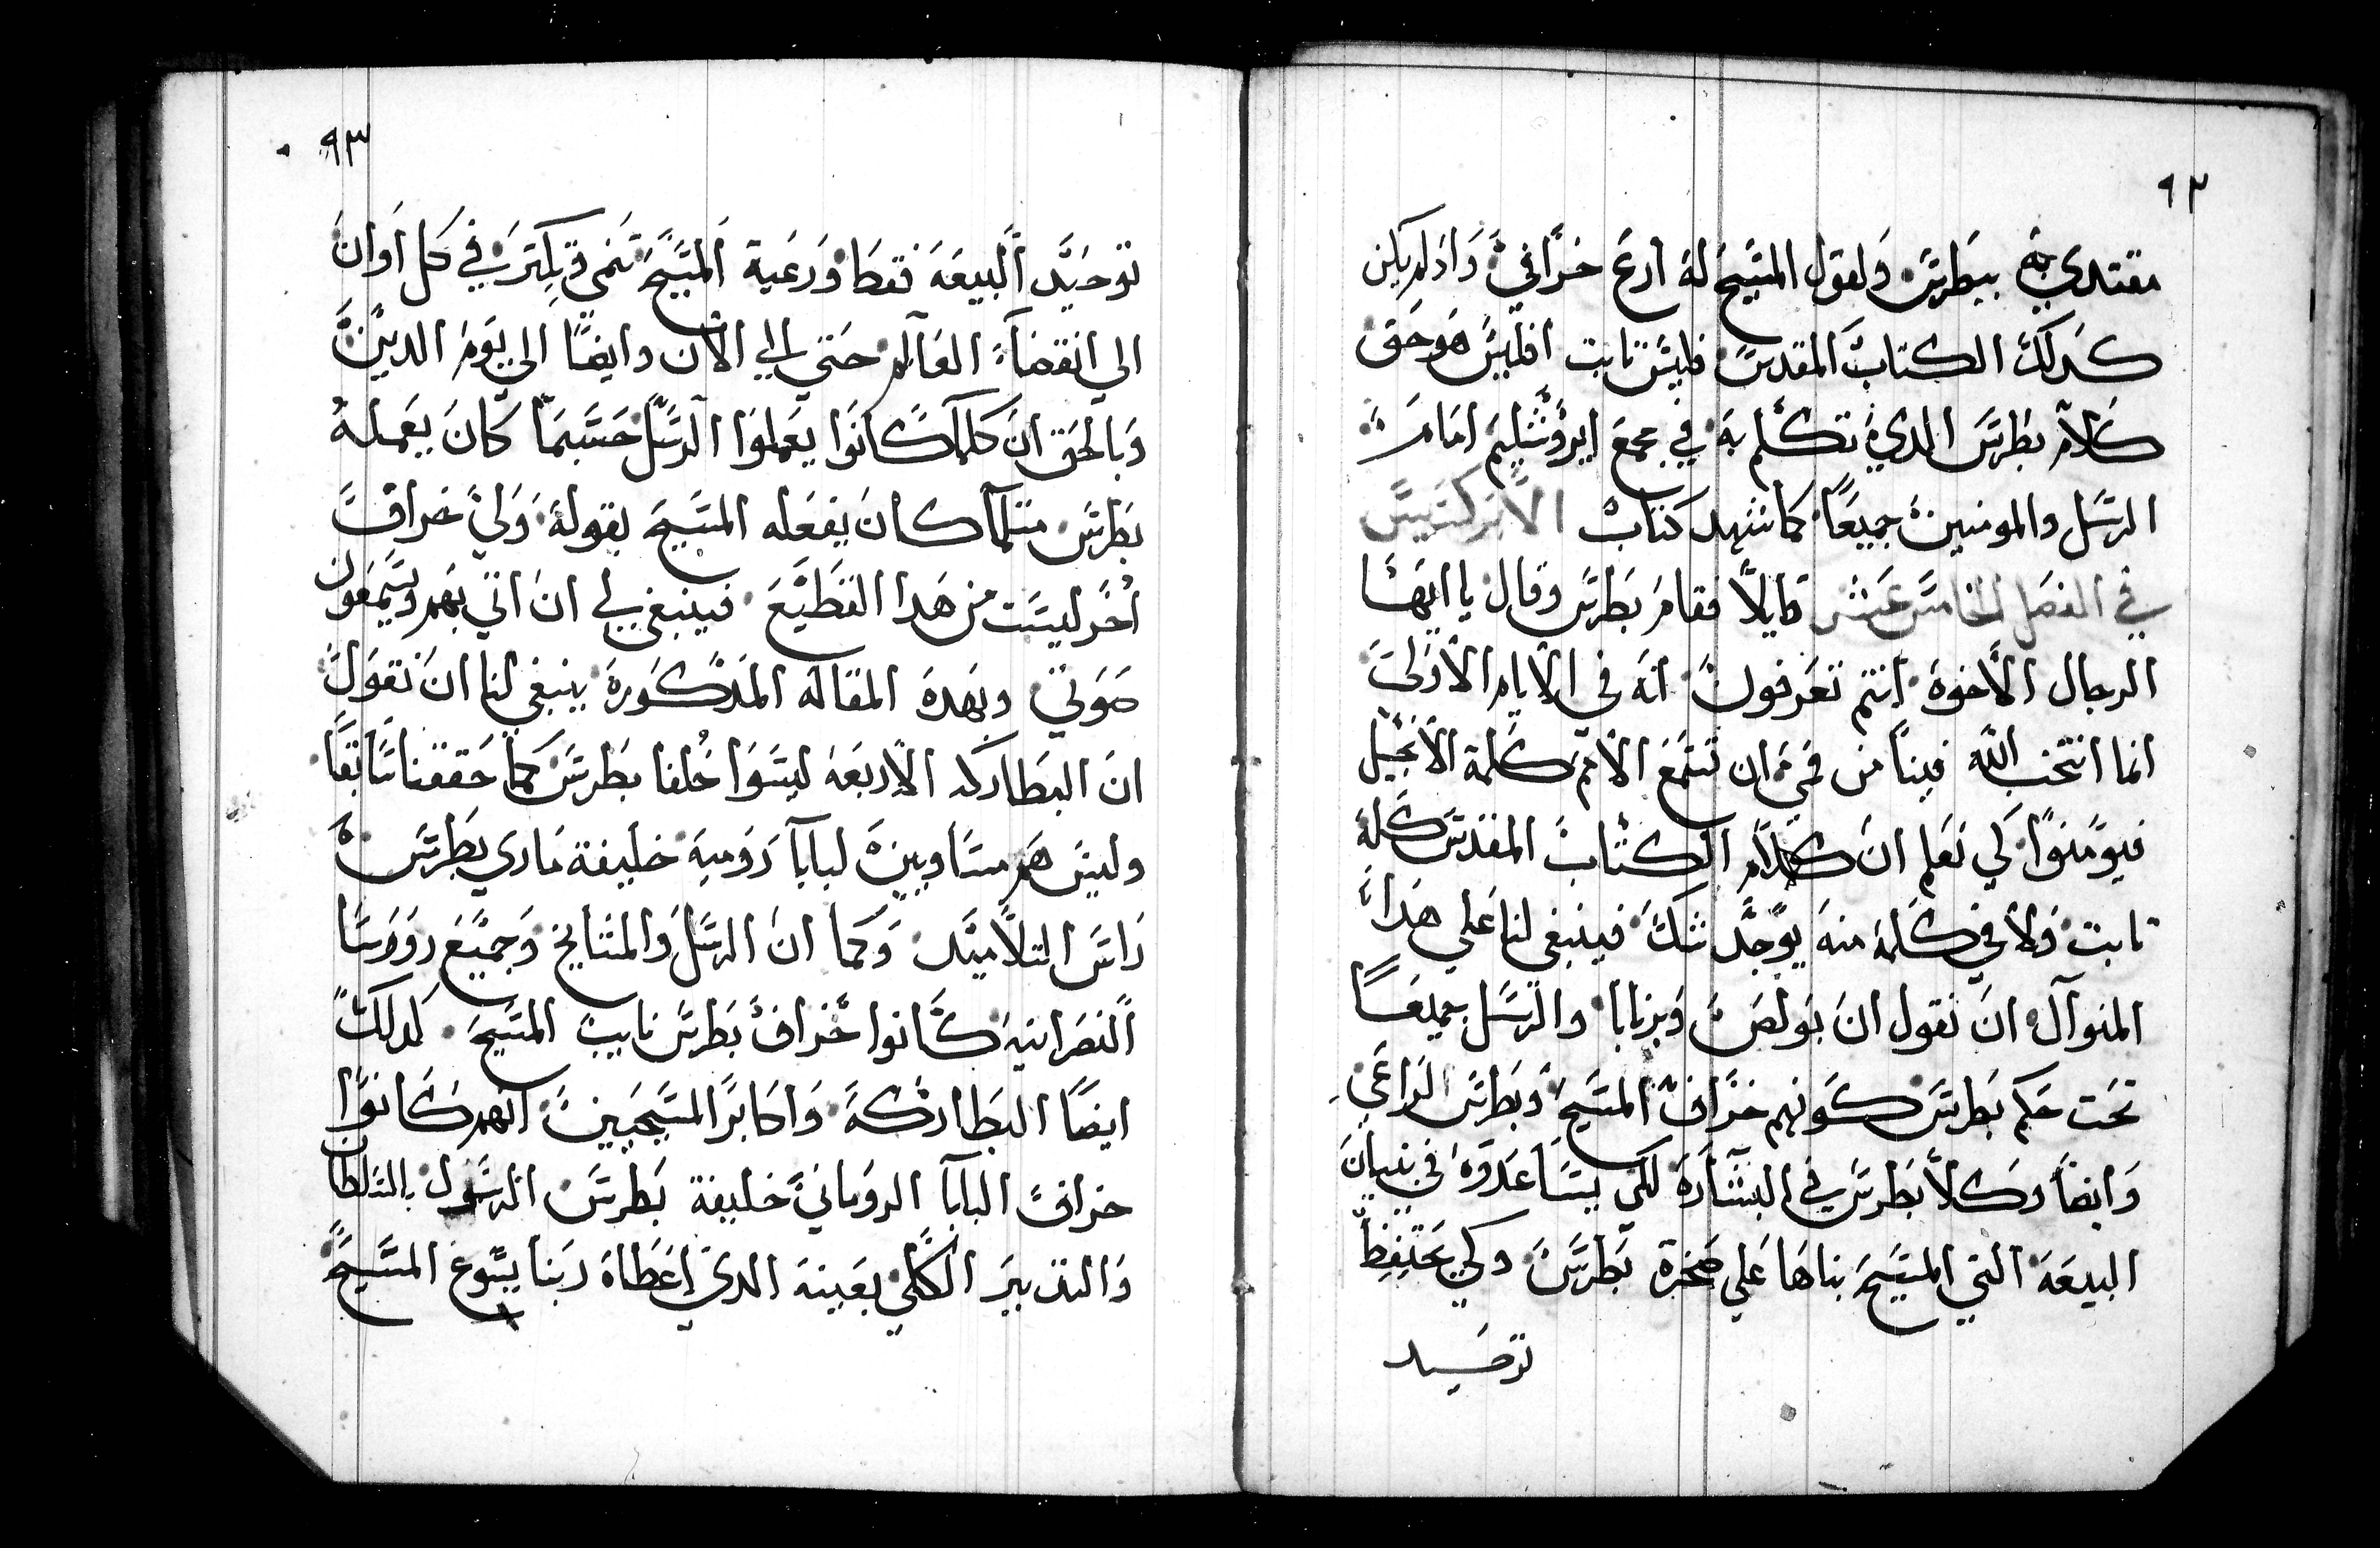 ٩٢
مقتدي به ببطرس ولقول المسيح له ارع خرافي واذ لم يكن
كدلك الكتاب المقدس فليس تابت افليس هو حق
كلام بطرس الدي تكلم به في مجمع ايروشليم امام
الرسل والمومنين جميعاً كما شهد كتاب الابركسيس
في الفصل الخامس عشر قايلاً فقام بطرس وقال يا ايها
الرجال الاخوة انتم تعرفون انه في الايام الاولي
انما انتخب الله فينا من فمي ان تسمع الامم كلمة الانجيل
فيومنوا لكي نعلم ان كلام الكتاب المقدس كله
تابت ولا في كلمة منه يوجد شك فينبغي لنا علي هدا
المنوال ان نقول ان بولص وبرنابا والرسل جميعا
تحت حكم بطرس كونهم خراف المسيح وبطرس الراعي
وايضا وكلا بطرس في البشارة لكي يساعدوه في بنيان
البيعة التي المسيح بناها علي صخرة بطرس ولكي يحتفظ
توحيد
٩٣
توحيد البيعة فقط ورعية المسيح تنمي وتكتر في كل اوان
الي انقضاء العالم حتي الي الان وايضا الي يوم الدين
وبالحق ان كلما كانوا يعملوا الرسل حسبما كان يعمله
بطرس متلما كان يفعله المسيح بقوله ولي خراف
اخر ليست من هدا القطيع فينبغي لي ان اتي بهم ويسمعون
صوتي وبهده المقاله المدكورة ينبغي لنا ان نقول
ان البطاركه الاربعه ليسوا خلفا بطرس كما حققنا سابقا
وليس هم مساويين لبابا رومية خليفة ماري بطرس
راس التلاميد وكما ان الرسل والمشايخ وجميع روسا
النصرانيه كانوا خراف بطرس نايب المسيح كدلك
ايضا البطاركة واكابر المسيحيين انهم كانوا
خراف البابا الروماني خليفة بطرس الرسول بالسلطان
والتدبير الكلي بعينه الدي اعطاه ربنا يسوع المسيح